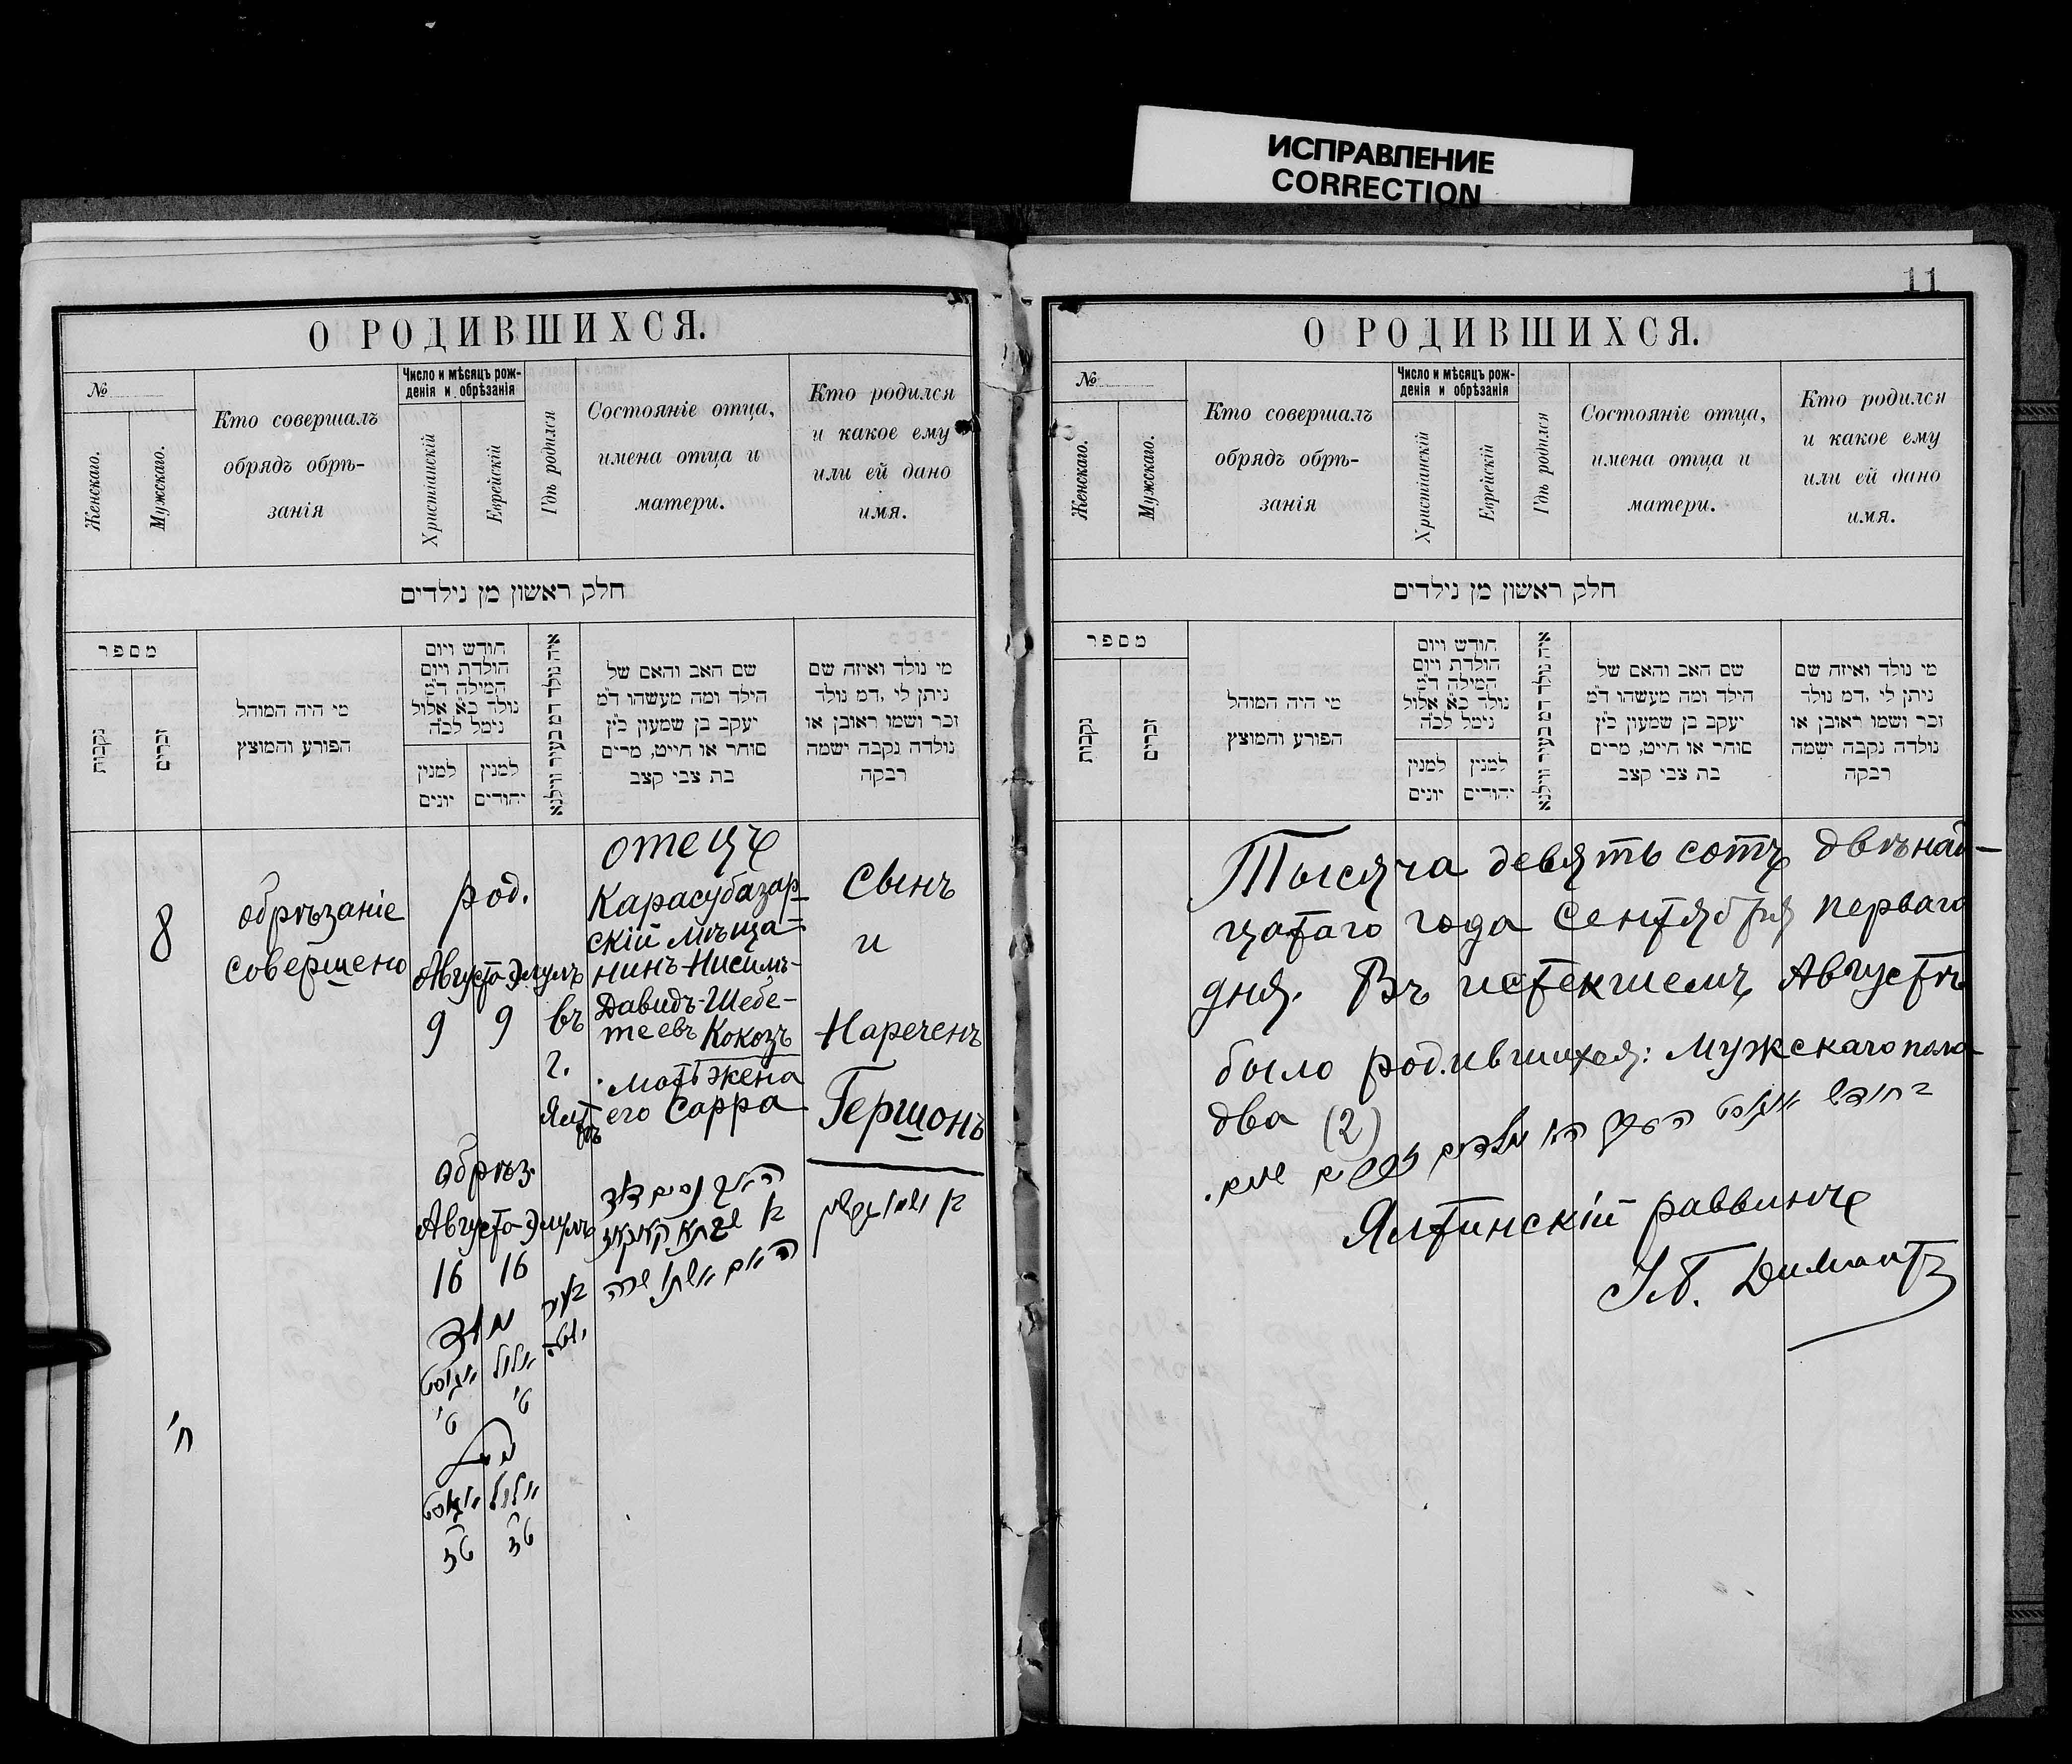 ИСПРАВЛЕНИЕ
CORRECTION
О РОДИВШИХСЯ.
№
Женскаго.
Мужскаго.
Кто совершалъ
обрядъ обрѣ-
занія
Число и мѣсяцъ рож-
денія и обрѣзанія
Христіанскій
Еврейскій
Гдѣ родился
Состояніе отца,
имена отца и
матери.
Кто родился
и какое ему
или ей дано
имя.
חלק ראשון מן נילדים
מספר
נקבות
זכרים
מי היה המוהל
הפורע והמוצץ
חודש ויום
הולדת ויום
המילה ד״מ
נולד כ״א אלול
נימל לכ״ה
למנין
יונים
למנין
יהודים
איה נולד דמ בעיר ווילנא
שם האב והאם של
הילד ומה מעשהו ד״מ
יעקב בן שמעון כ״ץ
סוחר או חייט, מרים
בת צבי קצב
מי נולד ואיזה שם
ניתן לי ,דמ נולד
זכר ושמו ראובן או
נולדה נקבה ישמה
רבקה
8
обрѣзаніе
совершено
род.
Августа Элулъ
9 9
въ
г.
Ялтѣ
отецъ
Карасубазар-
скій мѣща-
нинъ Нисимъ-
Давидъ-Шебе-
теевъ Кокозъ
мать жена
его Сарра
Сынъ
и
Нареченъ
Гершонъ
обрѣз.
Августа Элулъ
16 16
ח׳
נולד
אוגוסט אלול
ט׳ ט׳
נימל
אוגוסט אלול
ט״ז ט״ז
בעיר
יאלטה
האב נסים דוד
בן שבתי קאקאז
האם אשתו שרה
בן ושמו גרשון
11
О РОДИВШИХСЯ.
№
Женскаго.
Мужскаго.
Кто совершалъ
обрядъ обрѣ-
занія
Число и мѣсяцъ рож-
денія и обрѣзанія
Христіанскій
Еврейскій
Гдѣ родился
Состояніе отца,
имена отца и
матери.
Кто родился
и какое ему
или ей дано
имя.
חלק ראשון מן נילדים
מספר
נקבות
זכרים
מי היה המוהל
הפורע והמוצץ
חודש ויום
הולדת ויום
המילה ד״מ
נולד כ״א אלול
נימל לכ״ה
למנין
יונים
למנין
יהודים
איה נולד דמ בעיר ווילנא
שם האב והאם של
הילד ומה מעשהו ד״מ
יעקב בן שמעון כ״ץ
סוחר או חייט, מרים
בת צבי קצב
מי נולד ואיזה שם
ניתן לי ,דמ נולד
זכר ושמו ראובן או
נולדה נקבה ישמה
רבקה
Тысяча девятьсотъ двѣнад-
цатаго года Сентября перваго
дня. Въ истекшемъ Августѣ
было родившихся: мужскаго пола
два (2)
בחודש אוגוסט
Ялтинскій раввинъ
Димантъ